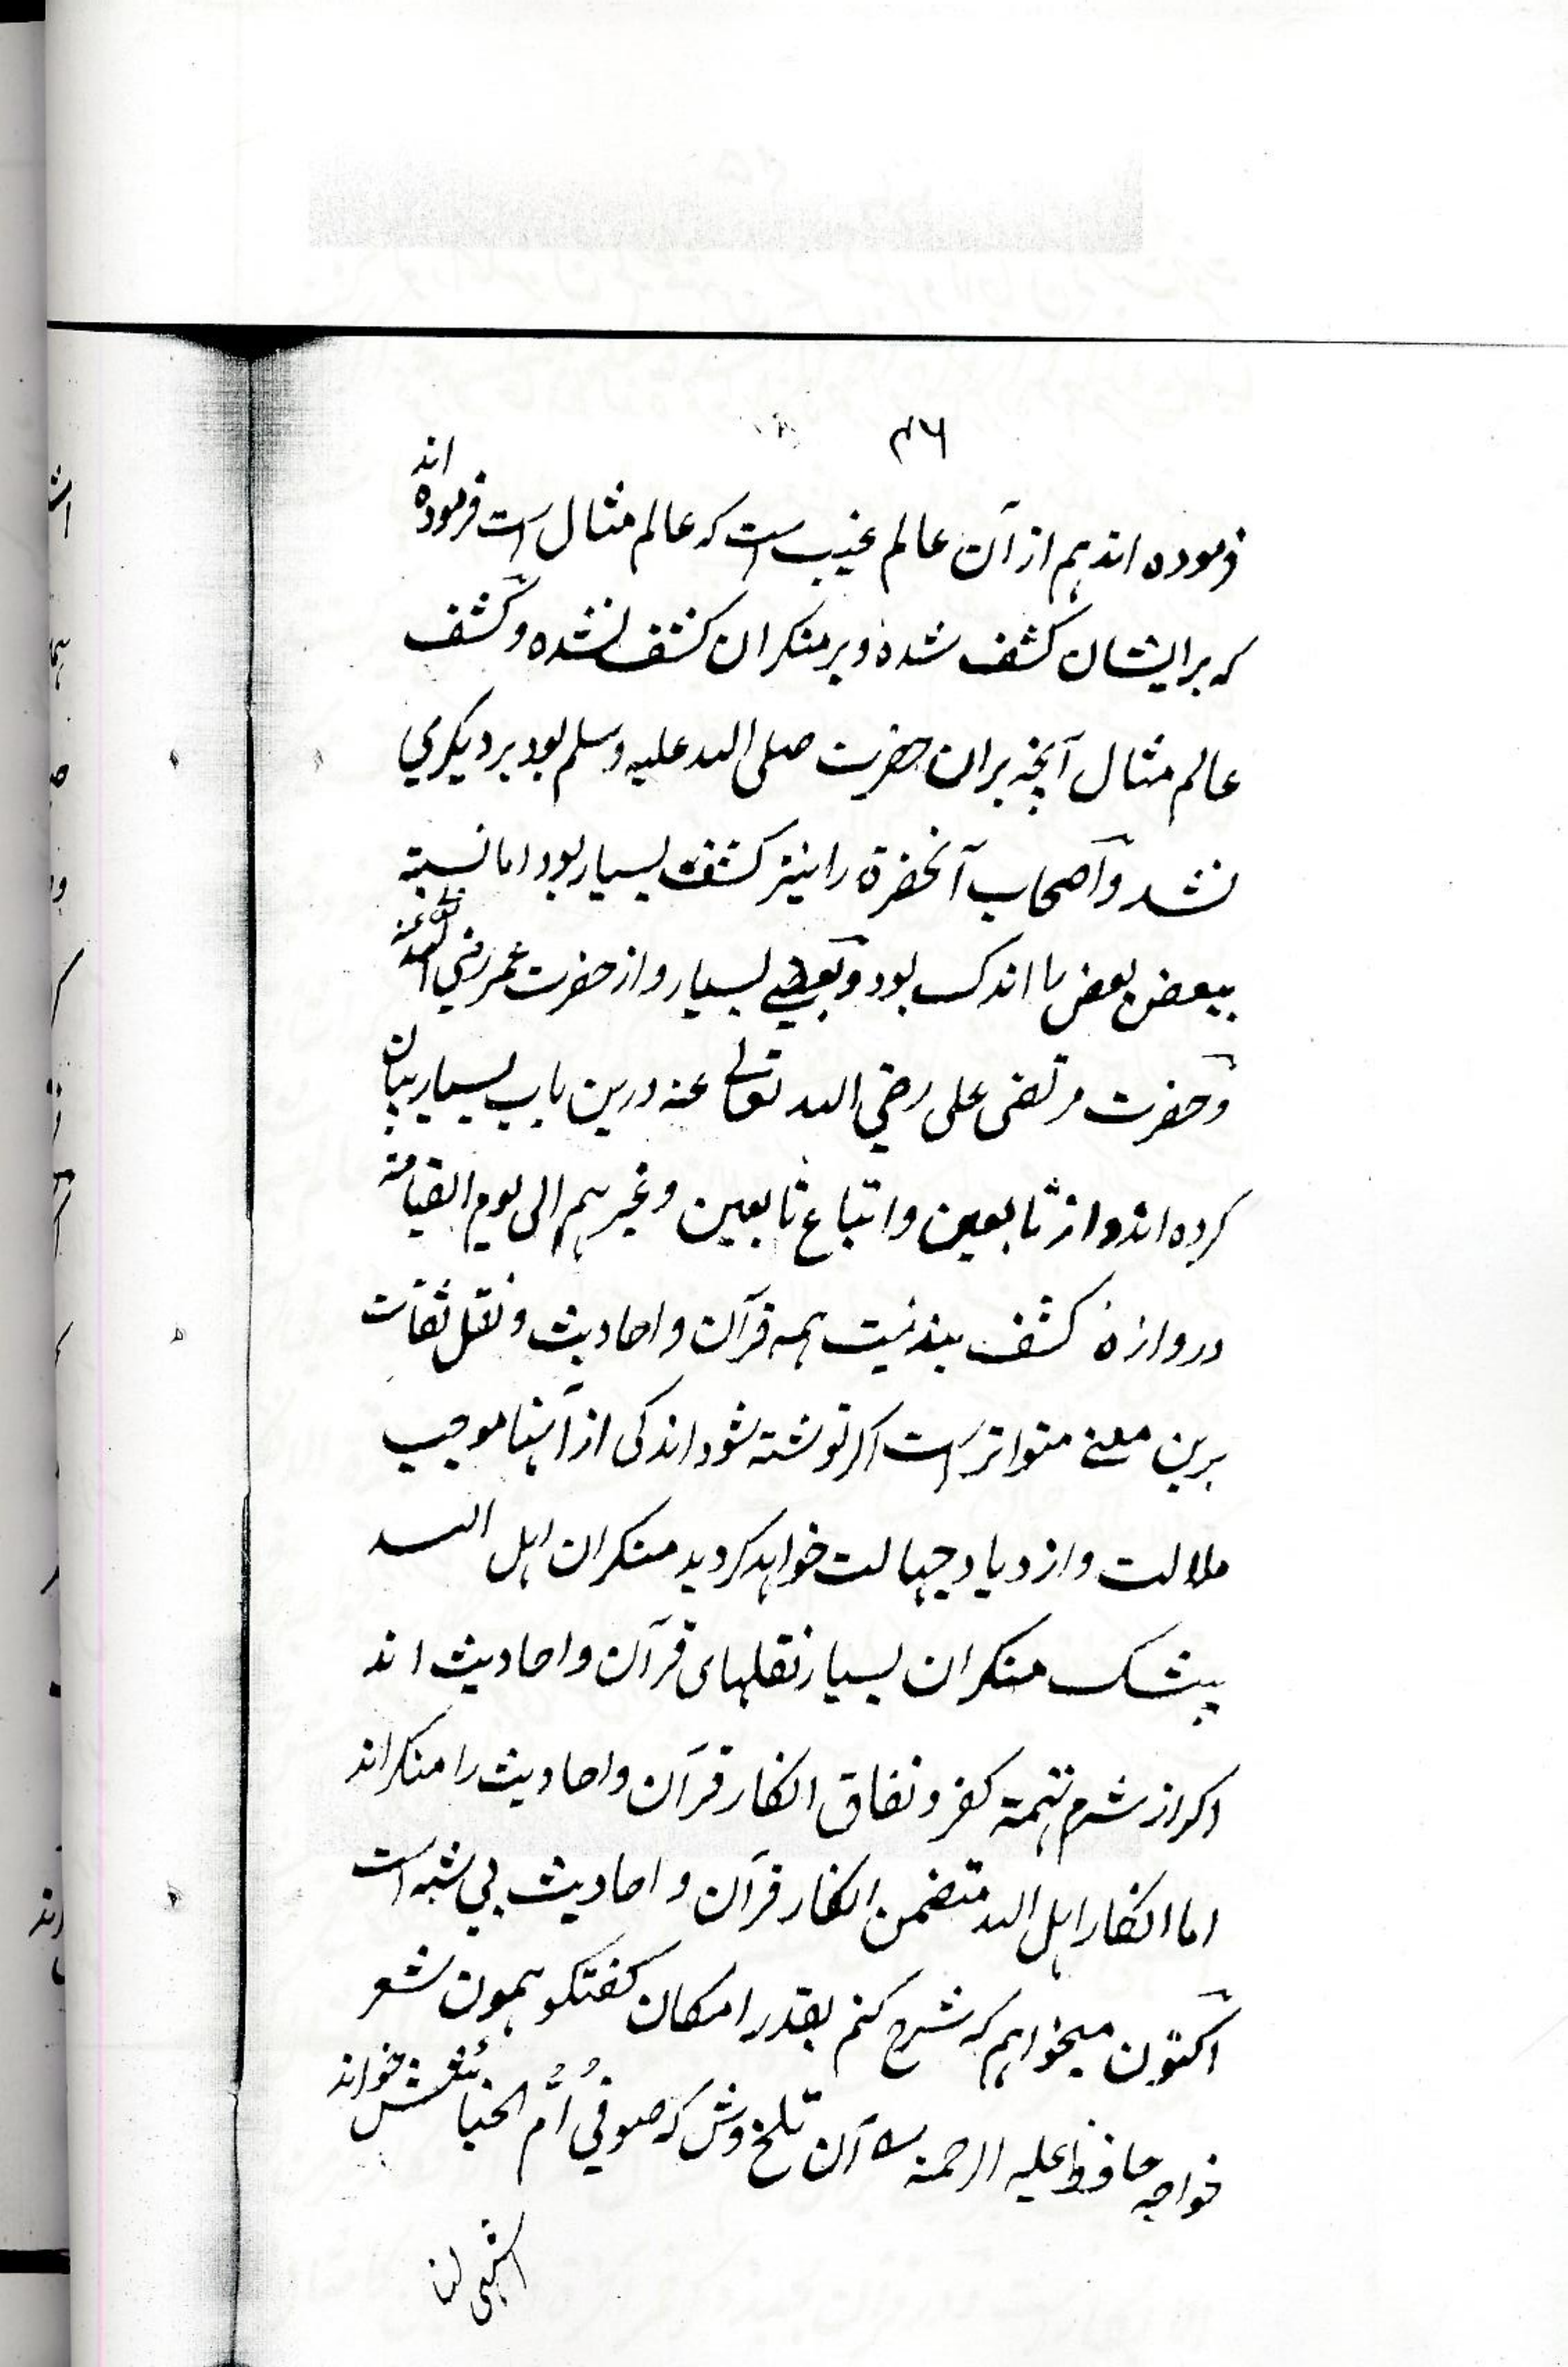 ۴۶
فرموده اند هم از آن عالم غیب است که عالم مثال است فرموده اند
که بر ایشان کشف شده و بر منکران کشف نشده و کشف
عالم مثال آنچه بران حضرت صلی الله علیه وسلم بود بر دیکری
نشد و اصحاب آنحضرة را نیز کشف بسیار بود اما نسبة
ببعض بعض را اندک بود و بعضے بسیار و از حضرت عمر رضی الله تعالی عنه
و حضرت مرتضی علی رضی الله تعالے عنه درین باب بسیار بیان
کرده اند و از تابعین و اتباع تابعین و غیر هم الی یوم القیامة
دروازهٔ کشف بند نیست همه قرآن و احادیث و نقل ثقات
برین معنے متواتر است اکر نوشته شود اندکی از آنها موجب
ملالت و ازدیاد جهالت خواهد کردید منکران اهل الله
بیشک منکران بسیار نقلهای قرآن و احادیث اند
اکر از شرم تهمة کفر و نفاق انکار قرآن و احادیث را منکر اند
اما انکار اهل الله متضمن انکار قرآن و احادیث بی شبه است
اکنون میخواهم که شرح کنم بقدر امکان کفتکو همون شعر
خواجه حافظ علیه الرحمة آن تلخ وش که صوفی اُمُّ الخبائثش خواند
اشهی لنا